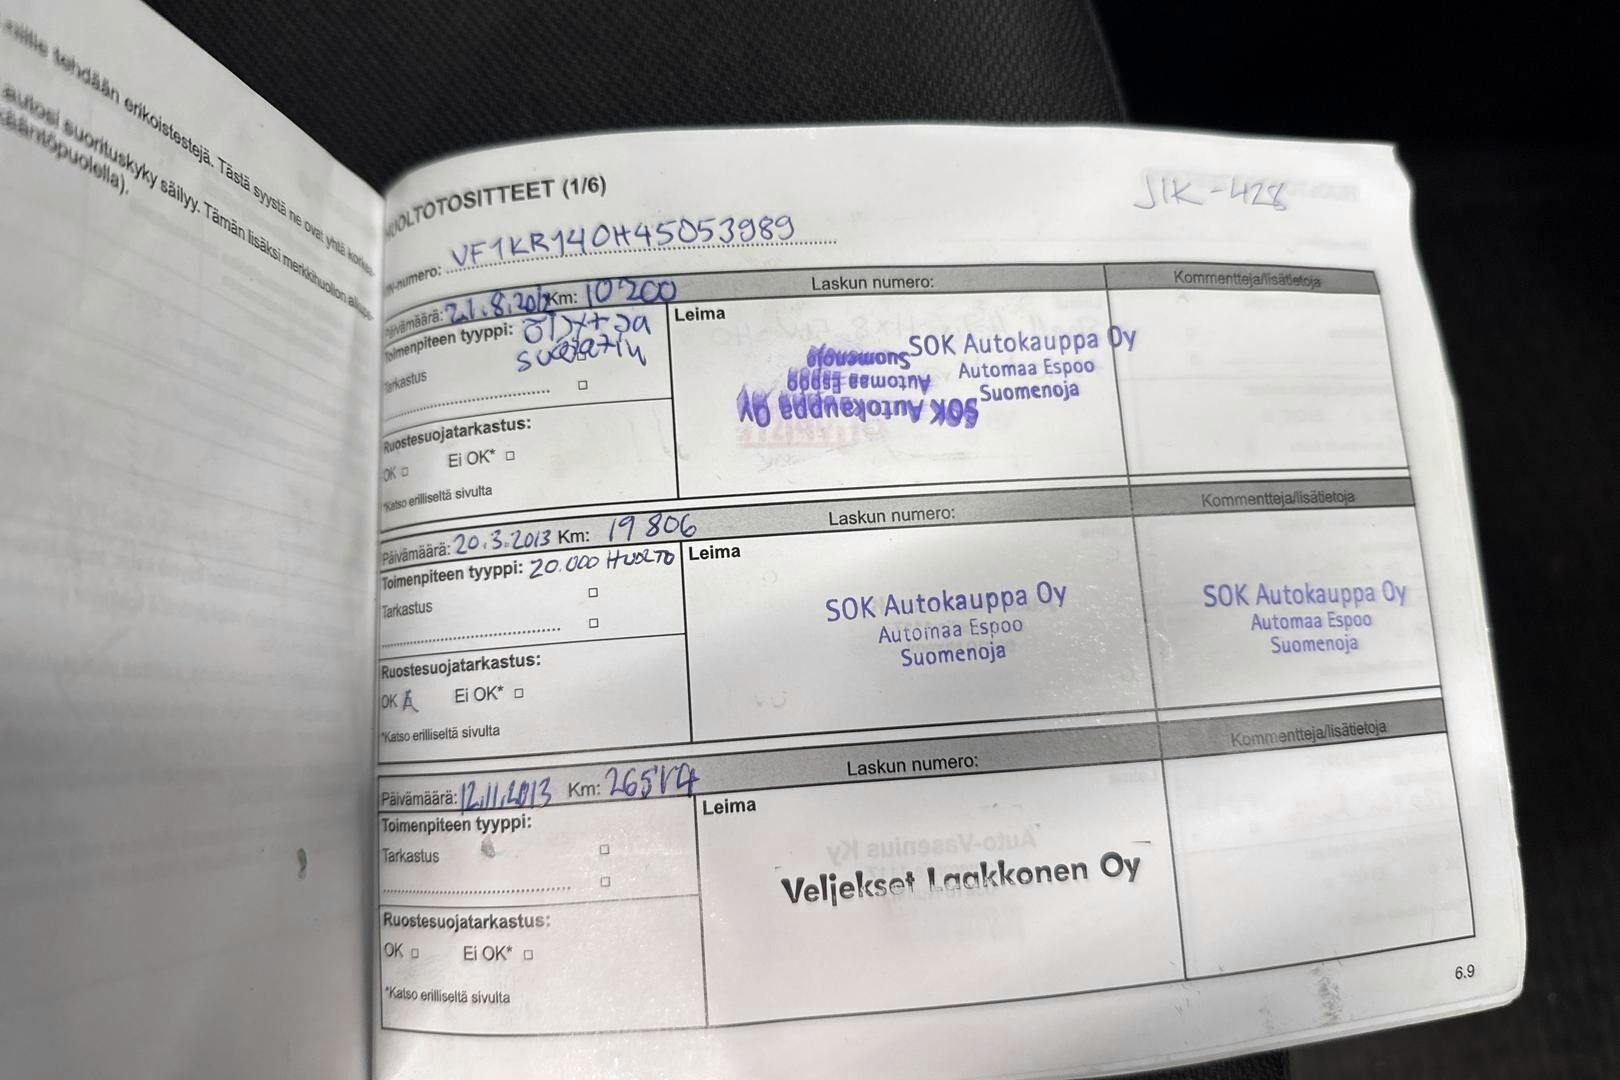 niille tehdään erikoistestejä. Tästä syystä ne ovat yhtä korkea-
autosi suorituskyky säilyy. Tämän lisäksi merkkihuollon alkupe-
kääntöpuolella).
HUOLTOTOSITTEET (1/6)
JIK-428
VIN-numero: VF1KR140H45053989
Päivämäärä: 21.8.2012 Km: 10 200
Laskun numero:
Kommentteja/lisätietoja
Toimenpiteen tyyppi: ÖLJYT JA
SUODATIN
Tarkastus
Leima
SOK Autokauppa Oy
Automaa Espoo
Suomenoja
SOK Autokauppa Oy
Automaa Espoo
Suomenoja
Ruostesuojatarkastus:
OK Ei OK*
*Katso erilliseltä sivulta
Päivämäärä: 20.3.2013 Km: 19 806
Laskun numero:
Kommentteja/lisätietoja
Toimenpiteen tyyppi: 20.000 HUOLTO
Tarkastus
Leima
SOK Autokauppa Oy
Automaa Espoo
Suomenoja
SOK Autokauppa Oy
Automaa Espoo
Suomenoja
Ruostesuojatarkastus:
OK Ei OK*
*Katso erilliseltä sivulta
Päivämäärä: 12.11.2013 Km:
Laskun numero:
Kommentteja/lisätietoja
Toimenpiteen tyyppi:
Tarkastus
Leima
Veljekset Laakkonen Oy
Auto-Vasenius Ky
Ruostesuojatarkastus:
OK Ei OK*
*Katso erilliseltä sivulta
6.9